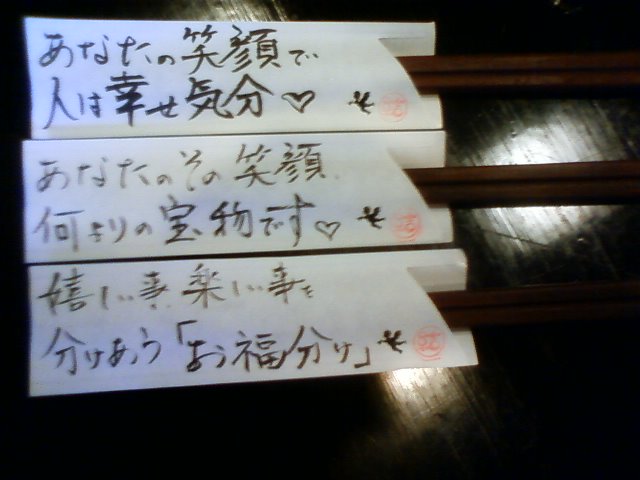 あなたの笑顔で
人は幸せ気分♡
あなたのその笑顔
何よりの宝物です♡
嬉しい事、楽しい事を
分けあう「お福分け」